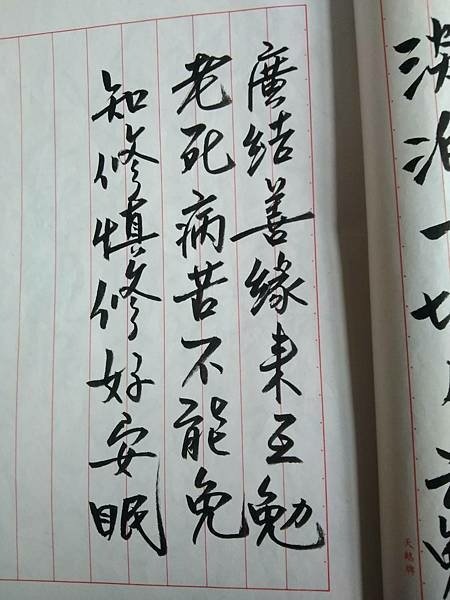 淡泊一切
廣結善緣来互勉
老死病苦不能免
知修慎修好安眠
天鵝牌